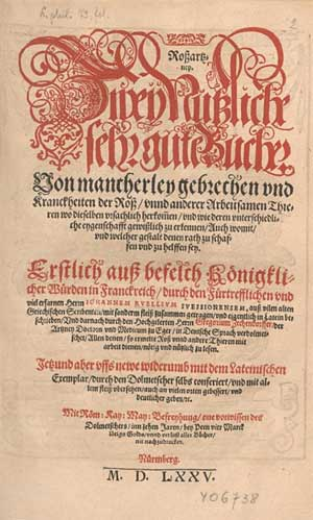 Roßartz-
ney.
Zwey Nutzliche
sehr gute Bücher/
Von mancherley gebrechen vnd
Kranckheiten der Roß/ vnnd anderer Arbeitsamen Thie-
ren wo dieselben vrsachlich herkomen/ vnd wie deren vnterschiedli-
che eygenschafft gewißlich zu erkennen/ Auch womit/
vnd welcher gestalt denen rath zu schaf-
fen vnd zu helffen sey.
Erstlich auß befelch Königkli-
cher Würden in Franckreich/ durch den Fürtrefflichen vnd
viel erfarnen Herrn IOHANNEM RVELLIVM SVESSIONENSEM, auß vilen alten
Griechischen Scribenten/ mit sonderm fleiß zusammen getragen/ vnd eigentlich in Latein be-
schrieben/ Vnd darnach durch den Hochgelerten Herrn Gregorium Zechendorffer, der
Artzney Doctorn vnd Medicum zu Eger/ in Deutsche Sprach verdolmet-
schet/ Allen denen/ so
arbeit dienen/ nötig vnd nützlich zu lesen.
Jetzund aber vffs newe widerumb mit dem Lateinischen
Exemplar/ durch den Dolmetscher selbs conferiert/ vnd mit al-
lem fleiß vbersehen/ auch an vielen orten gebessert/ vnd
deutlicher geben/ &c.
Mit Röm: Kay: May: Befreyhung/ one vorwissen des
Dolmetschers/ inn zehen Jaren/ bey Peen vier Marck
lötigs Golds/ vnnd verlust aller Bücher/
nit nachzudrucken.
Nürmberg.
M. D. LXXV.
Y06738